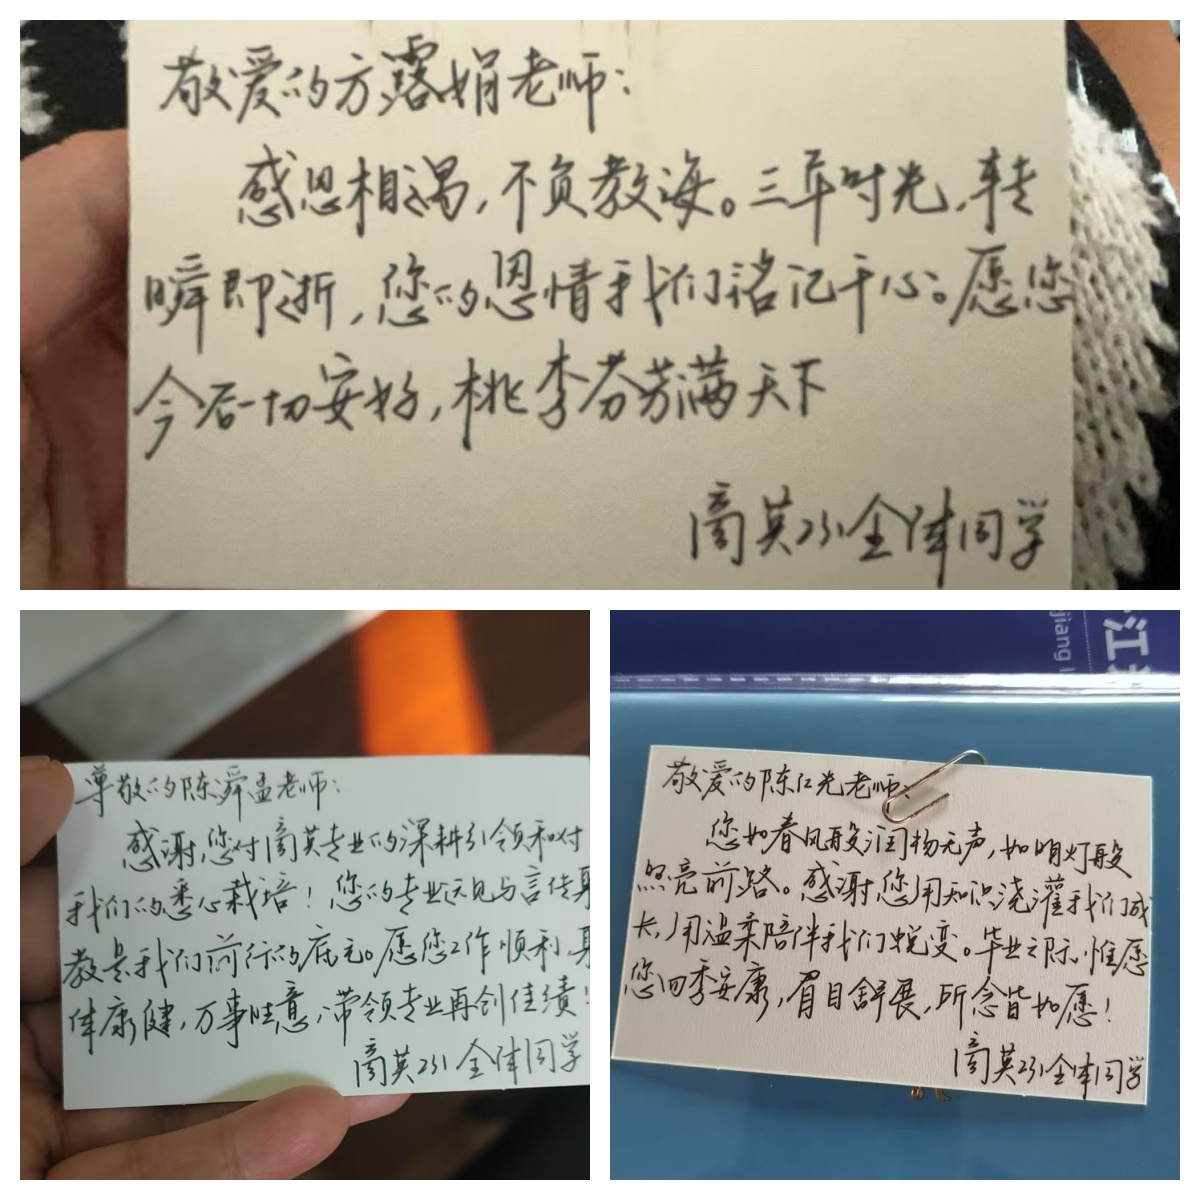 敬爱的方露娟老师：
感恩相遇，不负教诲。三年时光，转
瞬即逝，您的恩情我们铭记于心。愿您
今后一切安好，桃李芬芳满天下
商英231全体同学
尊敬的陈舜孟老师：
感谢您对商英专业的深耕引领和对
我们的悉心栽培！您的专业远见与言传身
教是我们前行的底光。愿您工作顺利，身
体康健，万事胜意，带领专业再创佳绩！
商英231全体同学
江
jiang
敬爱的陈仁光老师：
您如春风般润物无声，如明灯般
照亮前路。感谢您用知识浇灌我们成
长，用温柔陪伴我们蜕变。毕业之际，惟愿
您四季安康，眉目舒展，所念皆如愿！
商英231全体同学